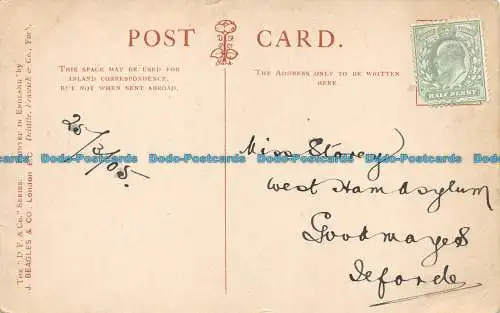 POST CARD.
THIS SPACE MAY BE USED FOR
INLAND CORRESPONDENCE,
BUT NOT WHEN SENT ABROAD.
THE ADDRESS ONLY TO BE WRITTEN
HERE.
HALF PENNY
25/3/05.
Miss Storey
West Ham Asylum
Goodmayes
Ilford
Dodo-Postcards Dodo-Postcards Dodo-Postcards Dodo-Postcards Dodo-Postcards
THE "D F. & Co." SERIES.
J. BEAGLES & CO. LONDON
PRINTED IN ENGLAND by